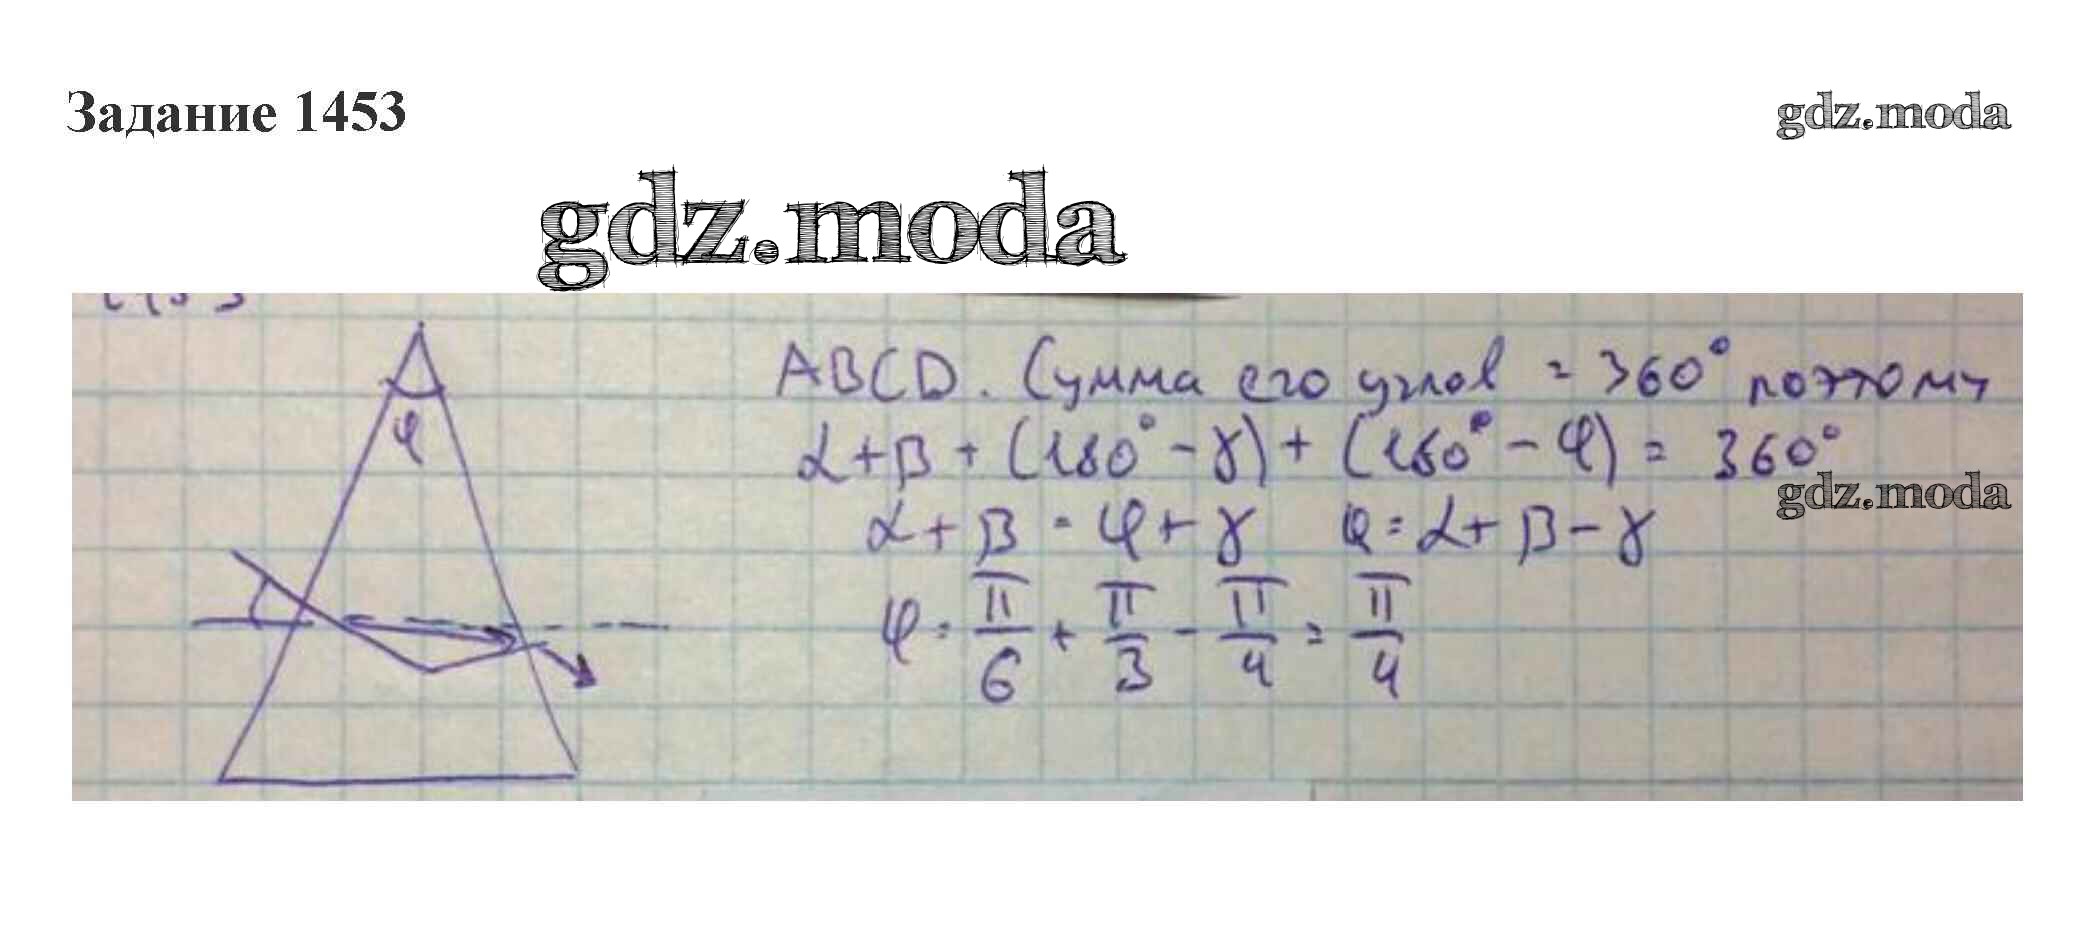 Задание 1453
gdz.moda
gdz.moda
ABCD. Сумма его углов = 360° поэтому
α + β + (180° - γ) + (180° - φ) = 360°
gdz.moda
α + β = φ + γ   φ = α + β - γ
φ = π/6 + π/3 - π/4 = π/4
φ